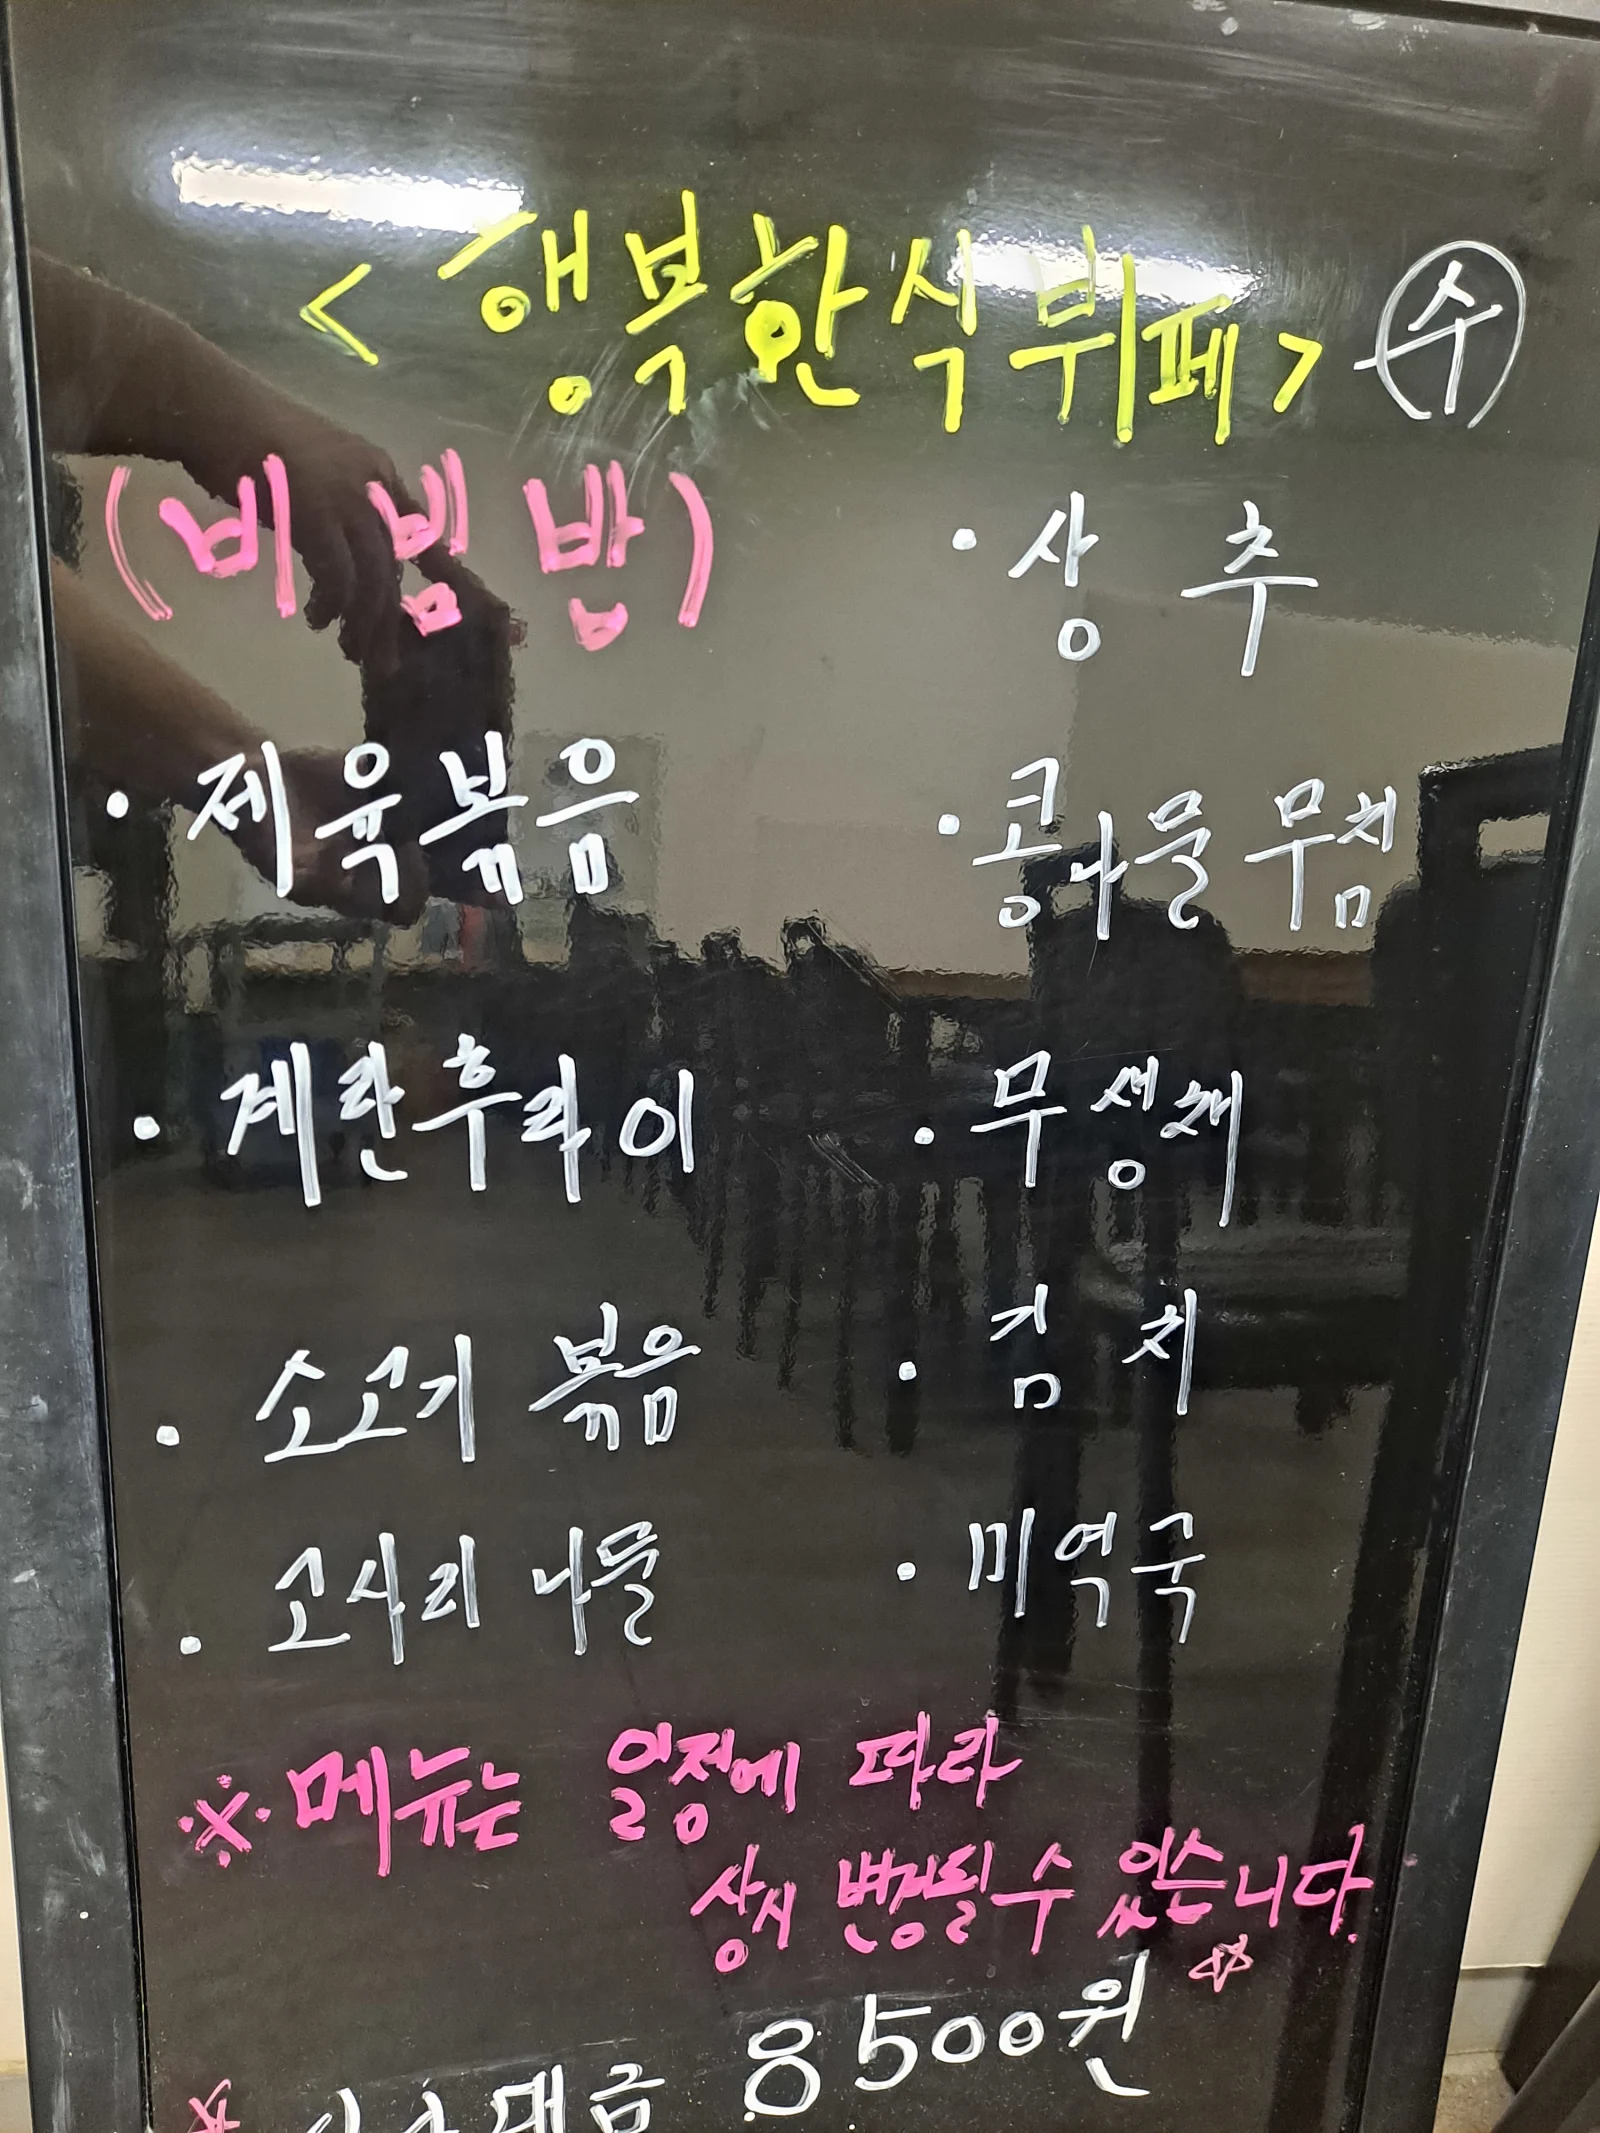 <행복한식뷔페> 수
(비빔밥)
· 상추
· 제육볶음
· 콩나물무침
· 계란후라이
· 무생채
· 소고기 볶음
· 김치
· 고사리 나물
· 미역국
※메뉴는 일정에 따라
상시 변경될수 있습니다.
☆ 대금 8500원 ☆